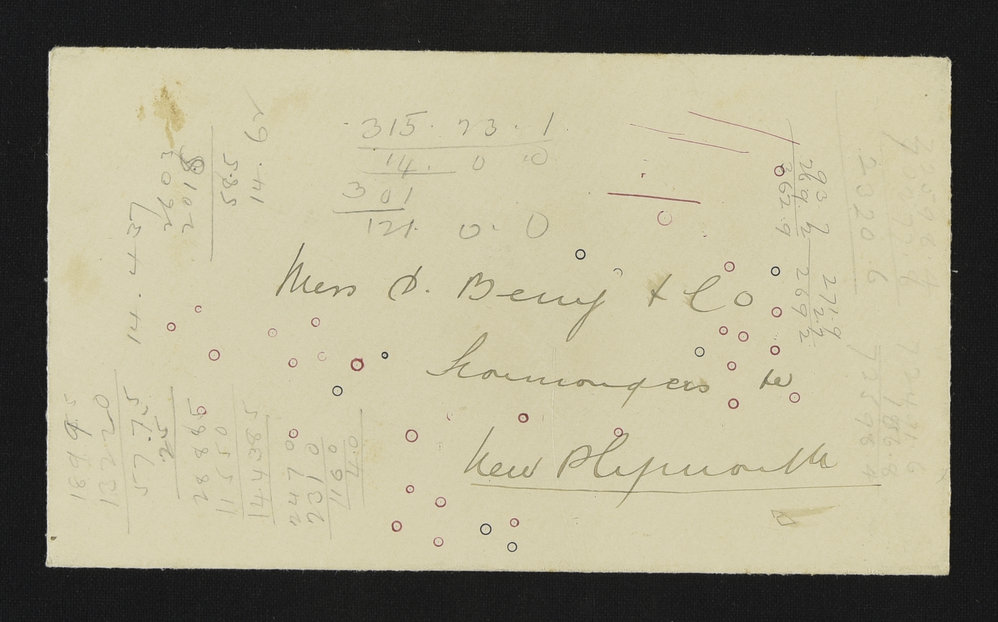 315.73.1
14. 0 0
301
121. 0. 0
Mess D. Berry & Co
Ironmongers &c
New Plymouth
14.437
2603
2018
585
14.62
18995
13220
57.75
25
28885
11550
144385
2470
2310
1160
40
93
269 ½
362.9
271.9
2 ½
269 ½
2320.6